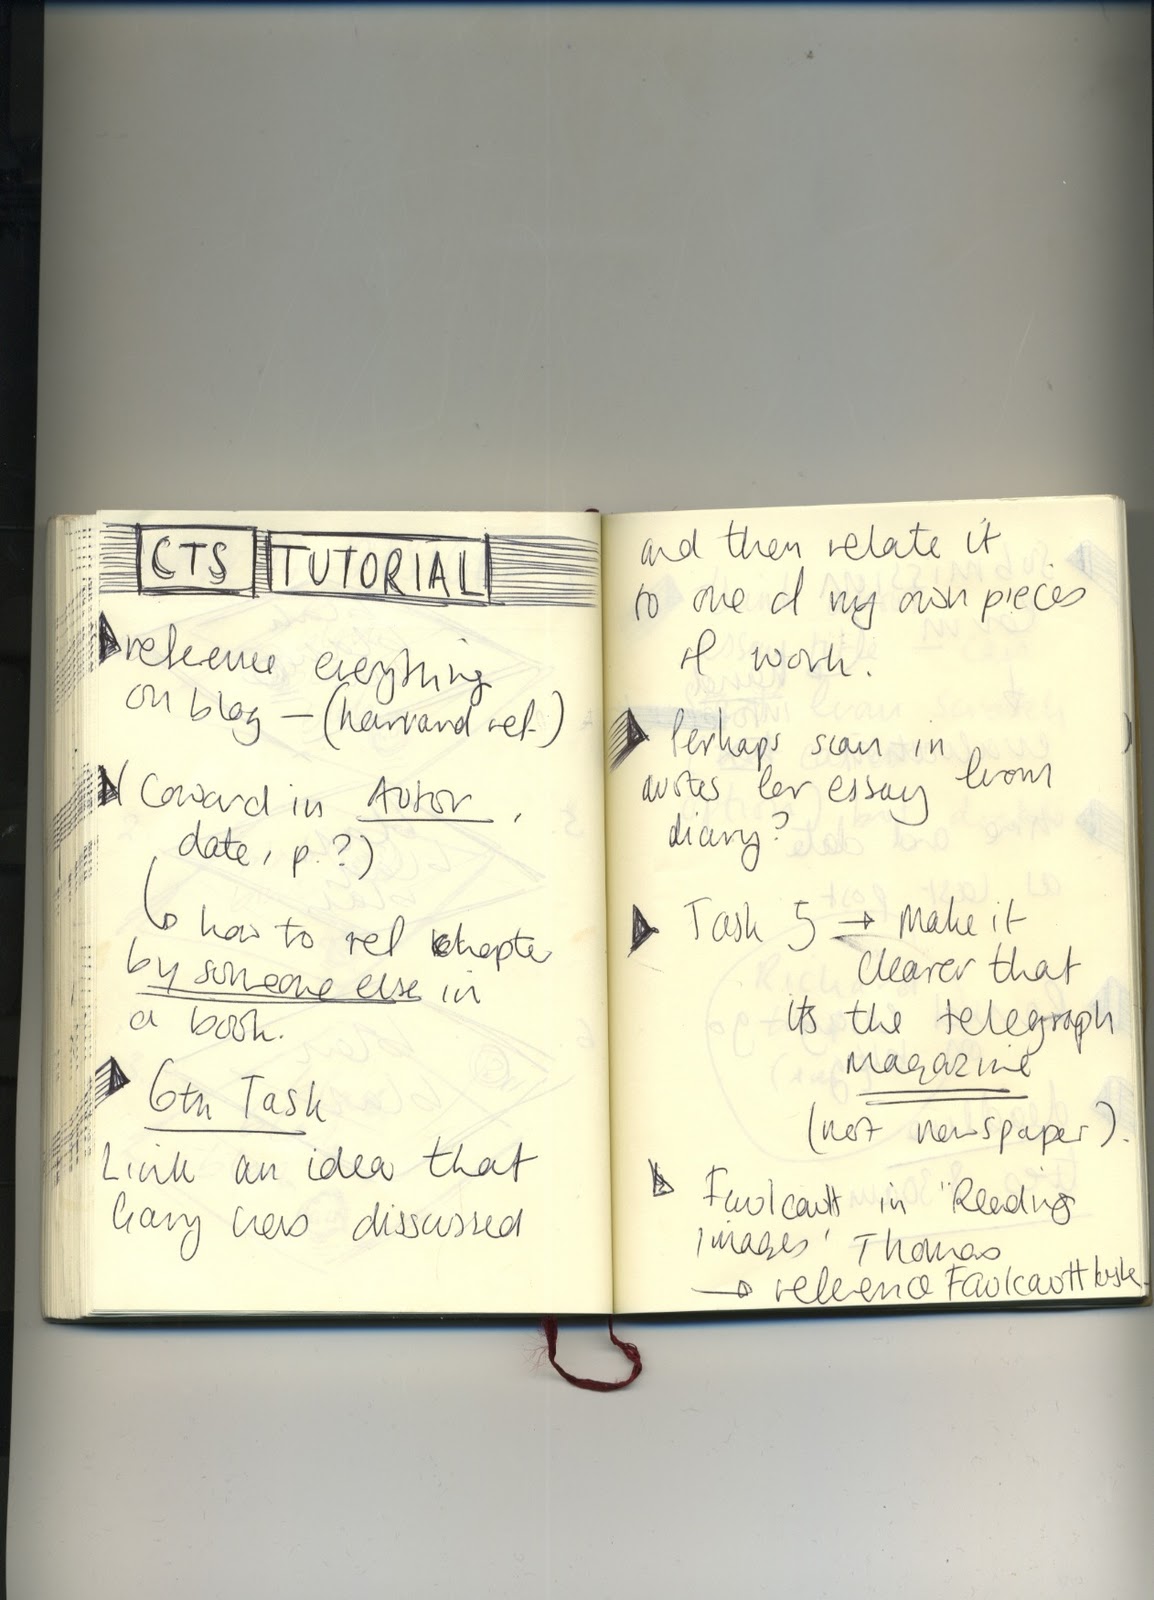 CTS TUTORIAL
reference everything
on blog — (harvard ref.)
(Coward in Autor,
date, p.?)
how to ref chapter
by someone else in
a book.
6th Task
Link an idea that
Gary has disscussed
and then relate it
to one of my own pieces
of work.
Perhaps scan in
quotes for essay from
diary?
Task 5 → Make it
clearer that
its the telegraph
magazine
(not newspaper).
Faulcautt in "Reading
images' Thomas
→ reference Faulcautt